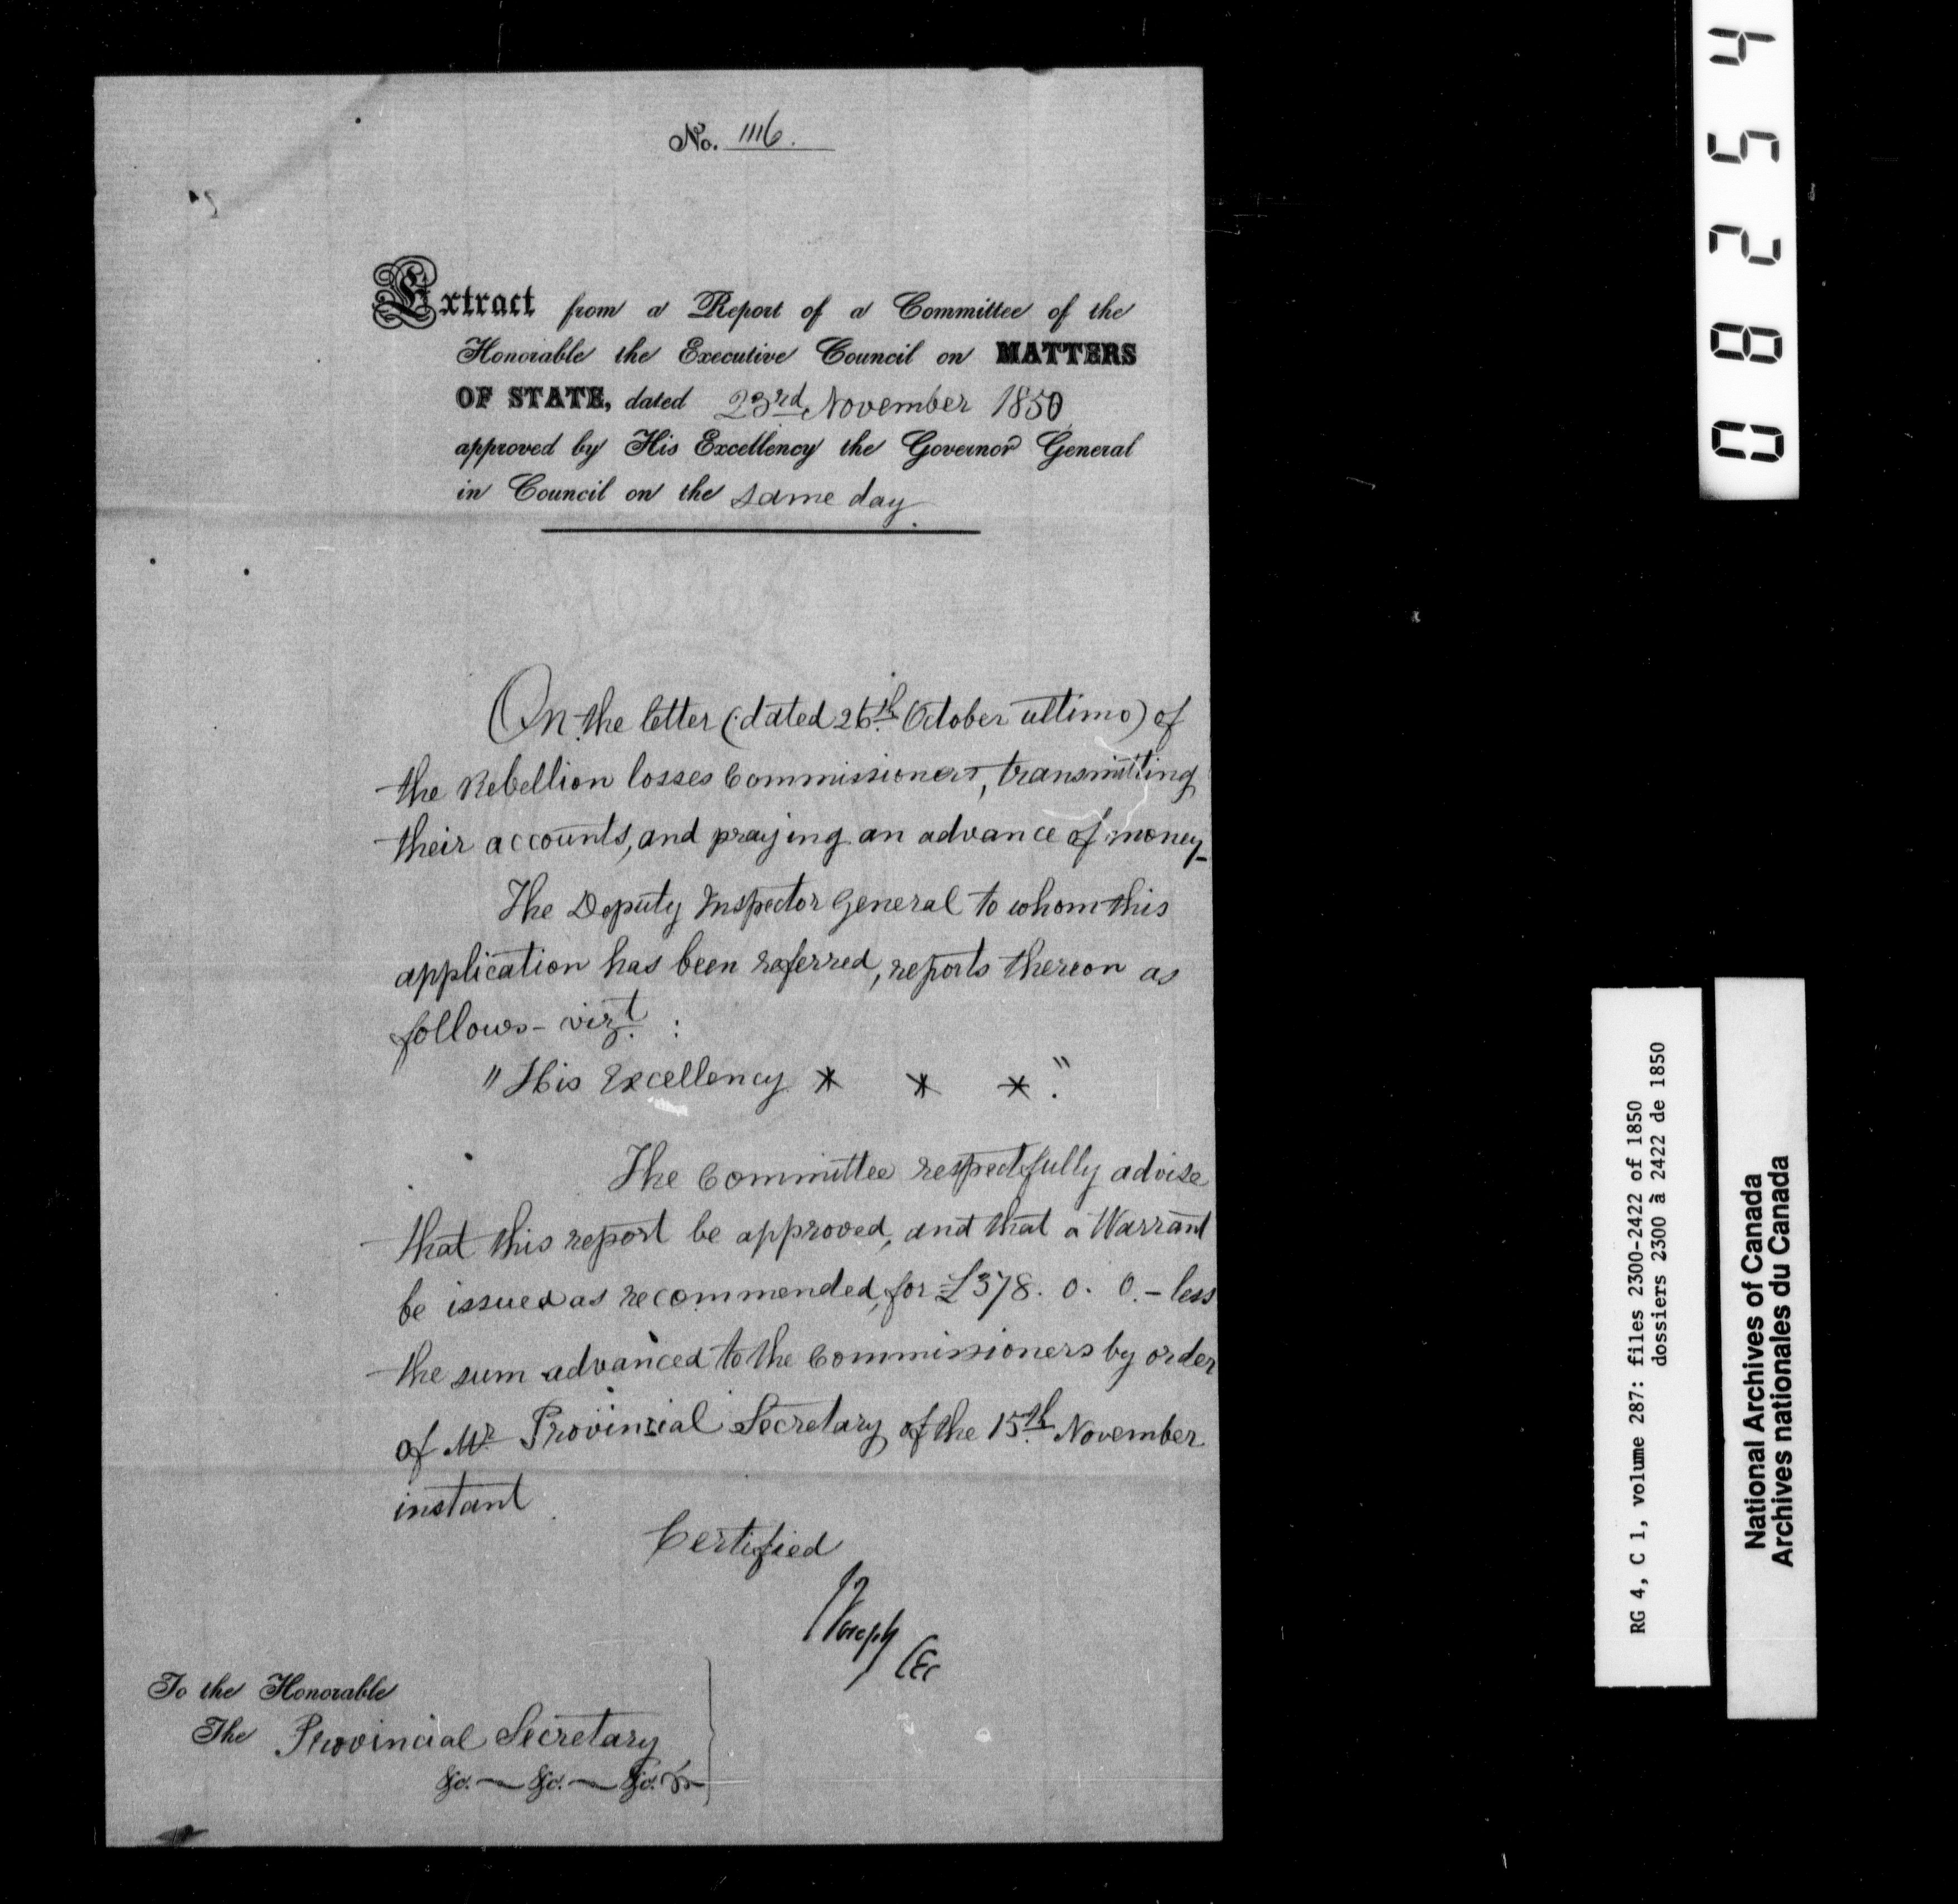 No. 1116.
Extract from a Report of a Committee of the
Honorable the Executive Council on MATTERS
OF STATE, dated 23rd November 1850
approved by His Excellency the Governor General
in Council on the same day.
On the letter (dated 26th October ultimo) of
the Rebellion losses Commissioners, transmitting
their accounts, and praying an advance of money_
The Deputy Inspector General to whom this
application has been referred, reports thereon as
follows - vizt. :
"His Excellency * * *."
The Committee respectfully advise
that this report be approved, and that a Warrant
be issued as recommended, for £378. 0. 0. - less
the sum advanced to the Commissioners by order
of Mr Provincial Secretary of the 15th November
instant
Certified
Joseph
CEC
To the Honorable
The Provincial Secretary
&c. — &c. — &c. &c.
08254
RG 4, C 1, volume 287: files 2300-2422 of 1850
dossiers 2300 à 2422 de 1850
National Archives of Canada
Archives nationales du Canada